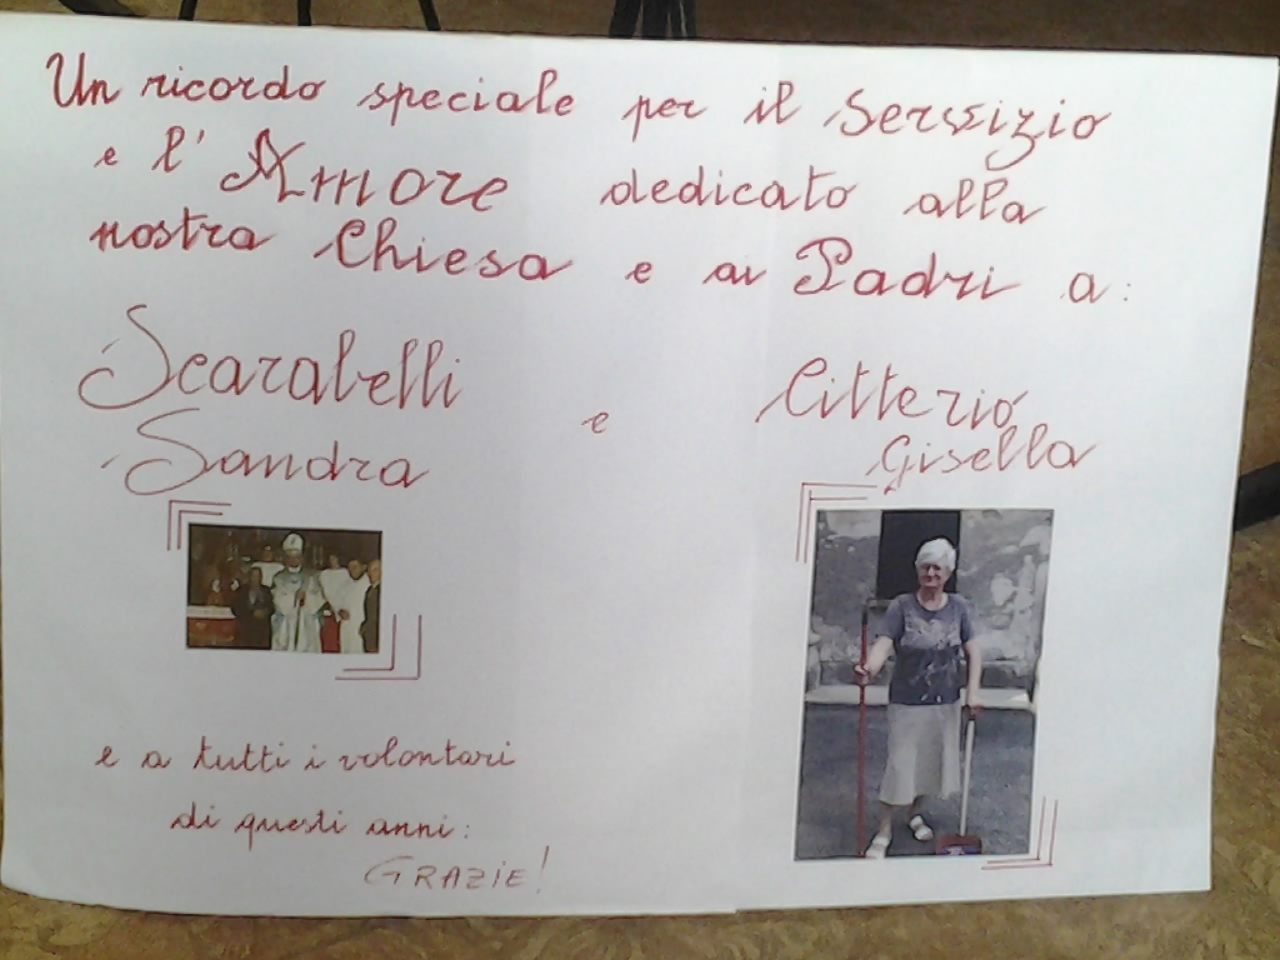 Un ricordo speciale per il Servizio
e l'Amore dedicato alla
nostra Chiesa e ai Padri a:
Scarabelli
Sandra
e
Citterio
Gisella
e a tutti i volontari
di questi anni:
GRAZIE!